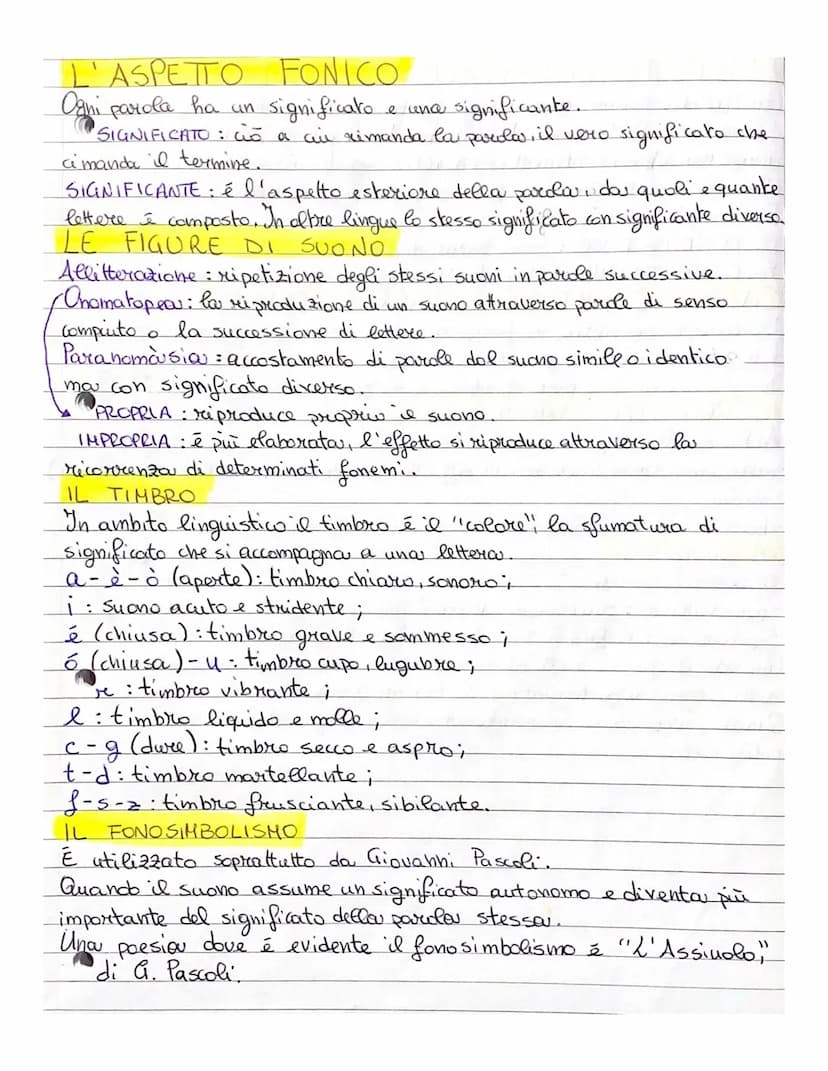 L'ASPETTO FONICO
Ogni parola ha un significato e una significante.
SIGNIFICATO: ciò a cui rimanda la parola, il vero significato che
ci manda il termine.
SIGNIFICANTE: é l'aspetto esteriore della parola, da quali e quante
lettere è composto. In altre lingue lo stesso significato con significante diverso.
LE FIGURE DI SUONO
Allitterazione: ripetizione degli stessi suoni in parole successive.
Onomatopea: la riproduzione di un suono attraverso parole di senso
compiuto o la successione di lettere.
Paranomàsia: accostamento di parole dal suono simile o identico
ma con significato diverso.
PROPRIA: riproduce proprio il suono.
IMPROPRIA: è più elaborata, l'effetto si riproduce attraverso la
ricorrenza di determinati fonemi.
IL TIMBRO
In ambito linguistico il timbro è il "colore", la sfumatura di
significato che si accompagna a una lettera.
a-è-ò (aperte): timbro chiaro, sonoro;
i: suono acuto e stridente;
é (chiusa): timbro grave e sommesso;
ó (chiusa)-u: timbro cupo, lugubre;
r: timbro vibrante;
l: timbro liquido e molle;
c-g (dure): timbro secco e aspro;
t-d: timbro martellante;
f-s-z: timbro frusciante, sibilante.
IL FONOSIMBOLISMO
É utilizzato soprattutto da Giovanni Pascoli.
Quando il suono assume un significato autonomo e diventa più
importante del significato della parola stessa.
Una poesia dove è evidente il fonosimbolismo è "L'Assiuolo",
di G. Pascoli.